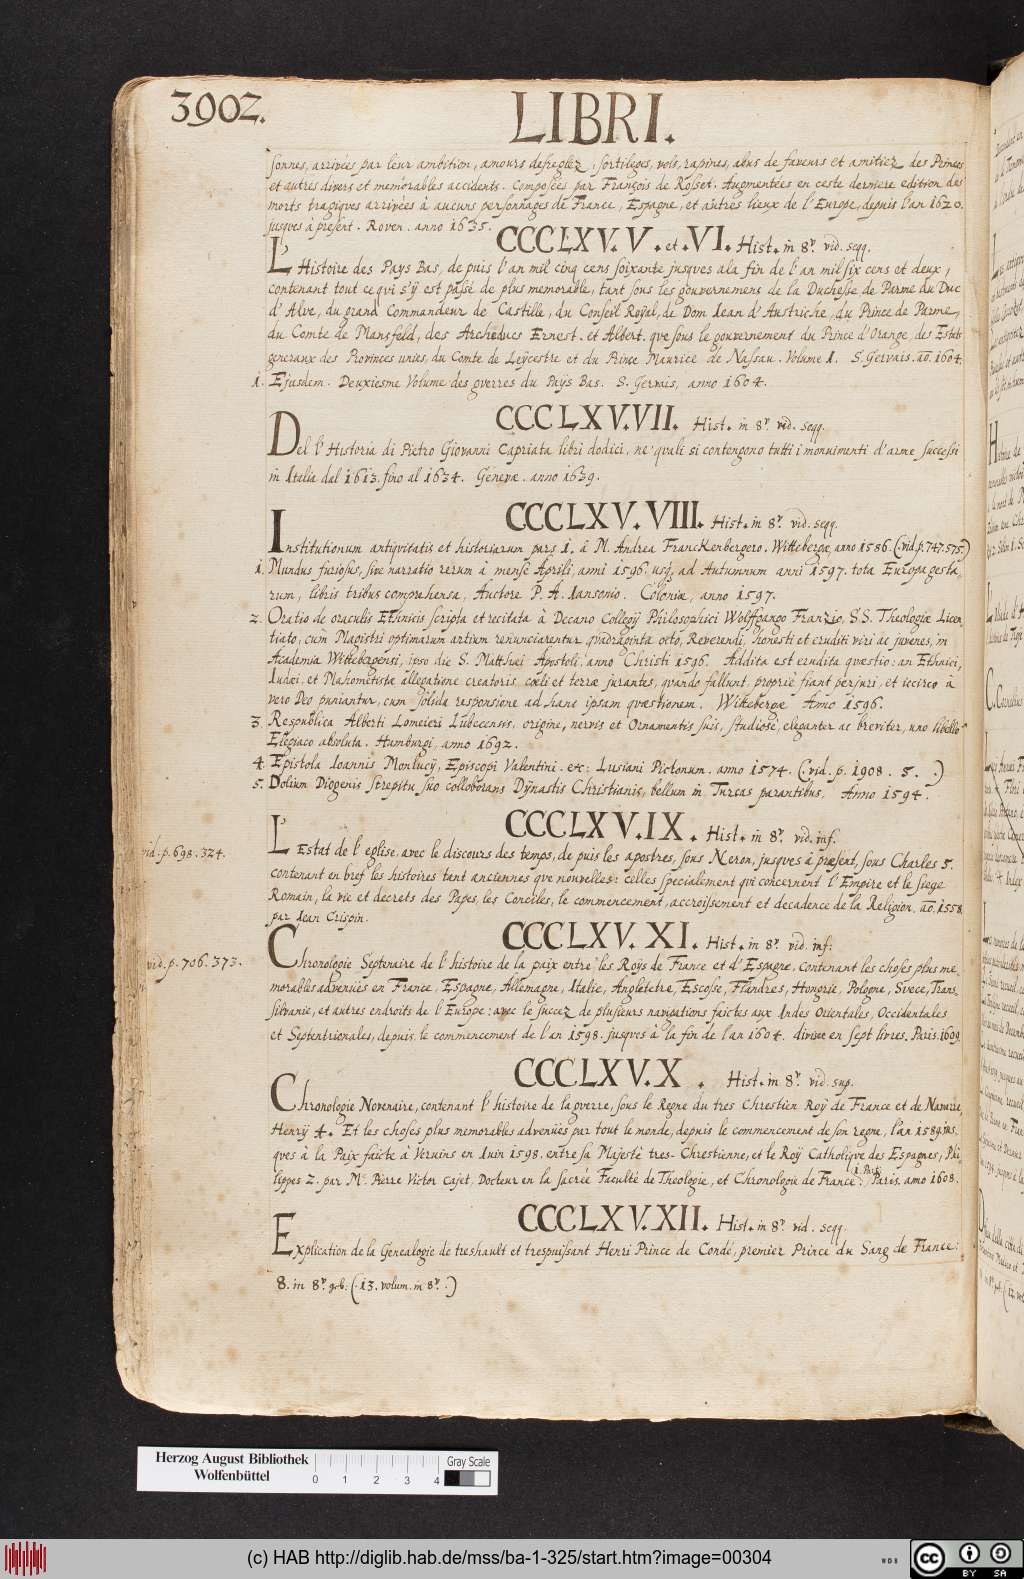 3902.
LIBRI.
sonnes, arrivées par leur ambition, amours desreglez, sortileges, vols, rapines, abus de faveurs et amitiez des Princes
et autres divers et memorables accidents. Composées par François de Rosset. Augmentées en ceste derniere edition des
morts tragiqves arrivées à aucuns personnages de France, Espagne, et autres lieux de l'Europe, depuis l'an 1620.
jusqves à present. Roven. anno 1635.
CCCLXV. V. et. VI. Hist. in 8º. vid. seqq.
L'Histoire des Pays Bas, de puis l'an mil cinq cens soixante jusqves ala fin de l'an mil six cens et deux,
contenant tout ce qvi s'ÿ est passé de plus memorable, tant sous les gouvernemens de la Duchesse de Parme du Duc
d'Alve, du grand Commandeur de Castille, du Conseil Royal, de Dom Iean d'Austriche, du Prince de Parme,
du Comte de Mansfeld, des Archeducs Ernest. et Albert. qve sous le gouvernement du Prince d'Orange, des Estats
generaux des Provinces unies, du Comte de Leÿcestre et du Prince Maurice de Nassau. Volume 1. S. Gervais. ao. 1604.
1. Ejusdem. Deuxiesme Volume des gverres du Paÿs Bas. S. Gervais, anno 1604.
CCCLXV. VII. Hist. in 8º. vid. seqq.
Del l'Historia di Pietro Giovanni Capriata libri dodici, ne' qvali si contengono tutti i monuimenti d'arme successi
in Italia dal 1613. fino al 1634. Geneva. anno 1639.
CCCLXV. VIII. Hist. in 8º. vid. seqq.
Institutionum antiqvitatis et historiarum pars 1. à M. Andrea Franckenbergero. Wittebergæ, anno 1586. (.vid. p. 747. 575.)
1. Mundus furiosus, sive narratio rerum à mense Aprili, anni 1596. usq; ad Autumnum anni 1597. tota Europa gesta
rum, libris tribus comprehensa, Auctore P. A. Iansonio. Coloniæ, anno 1597.
2. Oratio de oraculis Ethnicis scripta et recitata à Decano Collegÿ Philosophici Wolffgango Franzio, S S. Theologiæ Licen
tiato, cum Magistri optimarum artium renunciarentur, qvadraginta octo, Reverendi, honesti et eruditi viri ac juvenes, in
Academia Wittebergensi, ipso die S. Matthæi Apostoli, anno Christi 1596. Addita est erudita qvæstio: an Ethnici,
Iudæi, et Mahometistæ allegatione creatoris coeli et terræ jurantes, qvando fallunt, propriè fiant perjuri, et iccirco à
vero Deo puniantur, cum solida responsione ad hanc ipsam qvæstionem. Wittebergæ Anno 1596.
3. Respublica Alberti Lomeieri Lubecensis, origine, nervis et Ornamentis suis, studiosè, eleganter ac breviter, uno libello
Elegiaco absoluta. Hamburgi, anno 1692.
4. Epistola Ioannis Monlucÿ, Episcopi Valentini. etc: Lusiani Pictonum. anno 1574. (.vid. p. 1908. 5. .)
5. Dolium Diogenis strepitu suo collaborans Dÿnastis Christianis, bellum in Turcas parantibus. Anno 1594.
CCCLXV. IX. Hist. in 8º. vid. inf.
vid. p. 698. 324.
L'Estat de l'eglise avec le discours des temps, de puis les apostres, sous Neron, jusqves à præsent, sous Charles 5.
contenant en bref les histoires tant anciennes qve nouvelles: celles specialement qvi concernent l'Empire et le siege
Romain, la vie et decrets des Papes, les Conciles, le commencement, accroissement et decadence de la Religion. ao. 1558.
par Iean Crispin.
CCCLXV. XI. Hist. in 8º. vid. inf:
vid. p. 706. 373.
Chronologie Septenaire de l'histoire de la paix entre les Roÿs de France et d'Espagne, contenant les choses plus me
morables advenües en France, Espagne, Allemagne, Italie, Angleterre, Escosse, Flandres, Hongrie, Pologne, Svece, Trans-
silvanie, et autres endroits de l'Europe: avec le succez de plusieurs navigations faictes aux Indes Orientales, Occidentales
et Septentrionales, depuis le commencement de l'an 1598. jusqves à la fin de l'an 1604. divisee en sept livres. Paris. 1609.
CCCLXV. X. Hist. in 8º. vid. sup.
Chronologie Novenaire, contenant l'histoire de la gverre, sous le Regne du tres Chrestien Roÿ de France et de Navarre,
Henrÿ 4. Et les choses plus memorables advenües par tout le monde, depuis le commencement de son regne, l'an 1589. jus-
qves à la Paix faicte à Vervins en Iuin 1598. entre sa Majesté tres-Chrestienne, et le Roÿ Catholiqve des Espagnes, Phi-
lippes 2. par Mr. Pierre Victor Cajet, Docteur en la sacrée Faculté de Theologie, et Chronologie de France: 1. Part: Paris. anno 1608.
CCCLXV. XII. Hist. in 8º. vid. seqq.
Explication de la Genealogie de treshault et trespuissant Henri Prince de Condé, premier Prince du Sang de France:
8. in 8º. geb: (.13. volum. in 8º.)
Herzog August Bibliothek
Wolfenbüttel
0 1 2 3 4
Gray Scale
(c) HAB http://diglib.hab.de/mss/ba-1-325/start.htm?image=00304
WDB
cc BY SA